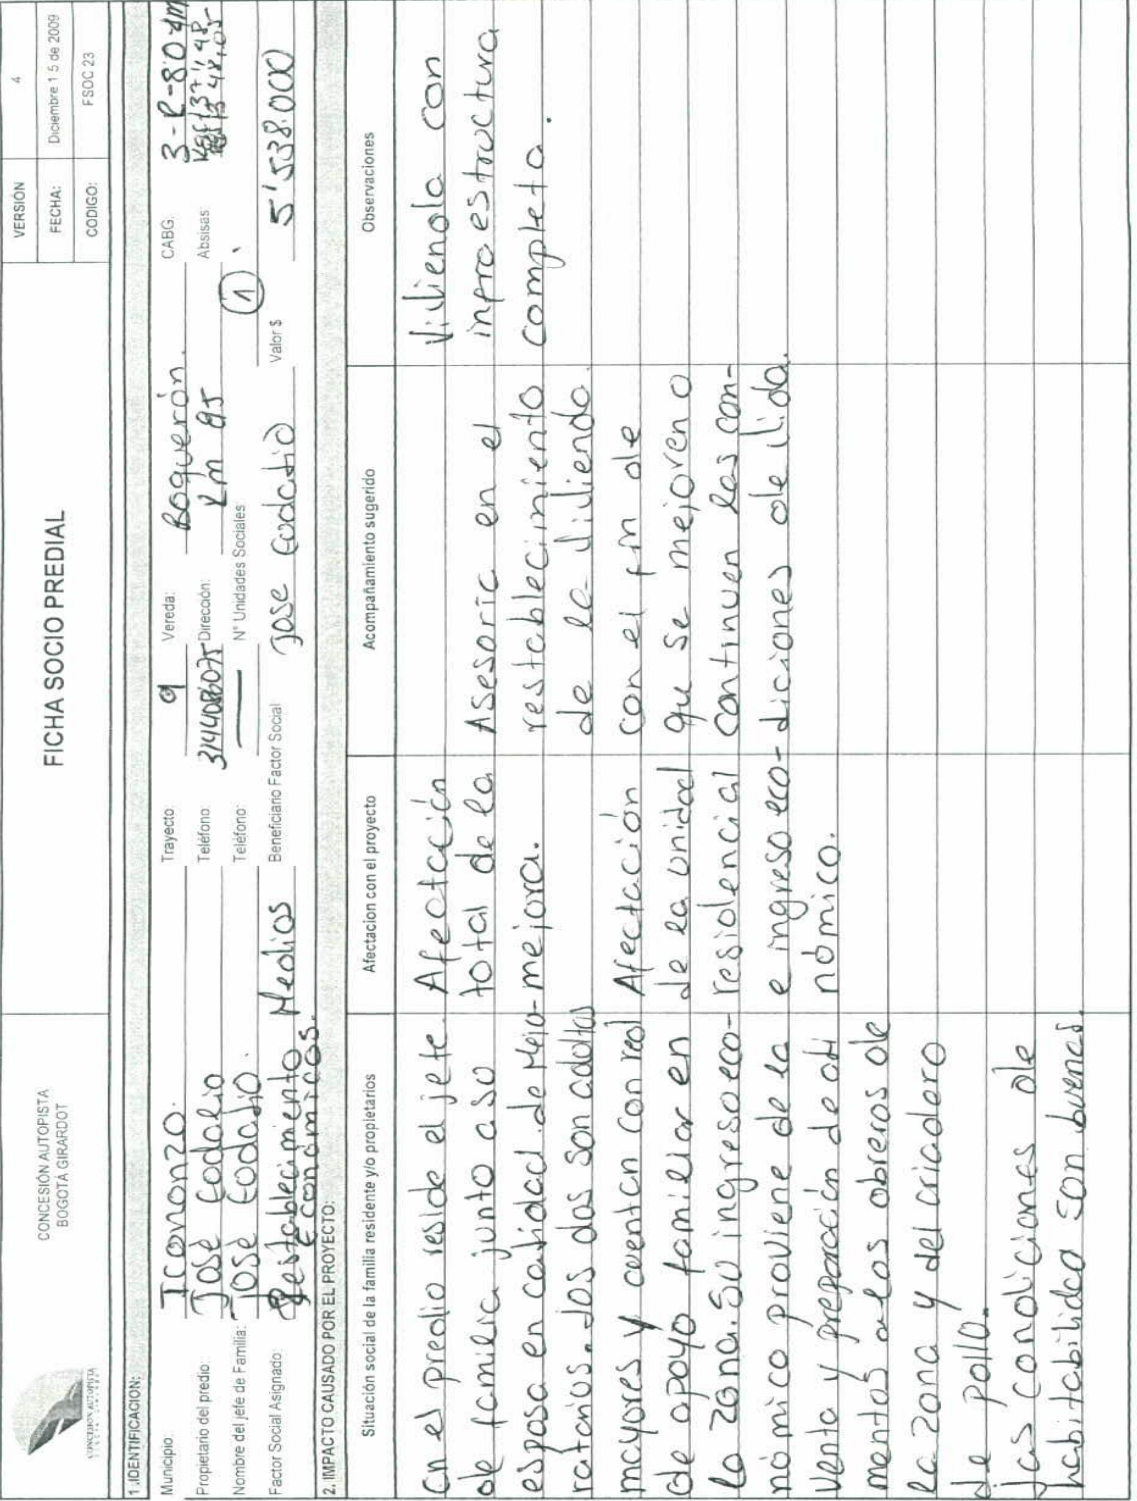 CONCESIÓN AUTOPISTA
CONCESIÓN AUTOPISTA
BOGOTÁ GIRARDOT
FICHA SOCIO PREDIAL
VERSIÓN 4
FECHA: Diciembre 1 5 de 2009
CODIGO: FSOC 23
1. IDENTIFICACION:
Municipio Icononzo. Trayecto: 9 Vereda: Boquerón. CABG. 3-R-80
Propietario del predio: José Eodalio Teléfono: Dirección: Km 95 Absisas
Nombre del jefe de Familia: José Eodadio. Teléfono: — N° Unidades Sociales: 1
Factor Social Asignado: Restablecimiento Medios Económicos. Beneficiario Factor Social José Eodadio Valor $ 5'538.000
2. IMPACTO CAUSADO POR EL PROYECTO:
Situación social de la familia residente y/o propietarios
en el predio reside el jefe
de familia junto a su
esposa en calidad de Mejo-
ratarios. Los dos son adultos
mayores y cuentan con red
de apoyo familiar en
la zona. Su ingreso eco-
nómico proviene de la
venta y preparación de ali
mentos a los obreros de
la zona y del criadero
de pollo.
Las condiciones de
habitabilidad son buenas.
Afectacion con el proyecto
Afectación
total de la
mejora.
Afectación
de la unidad
residencial
e ingreso eco-
nómico.
Acompañamiento sugerido
Asesoría en el
restablecimiento
de la vivienda
con el fin de
que se mejoren o
continuen las con-
diciones de vida.
Observaciones
Vivienda con
infraestructura
completa.